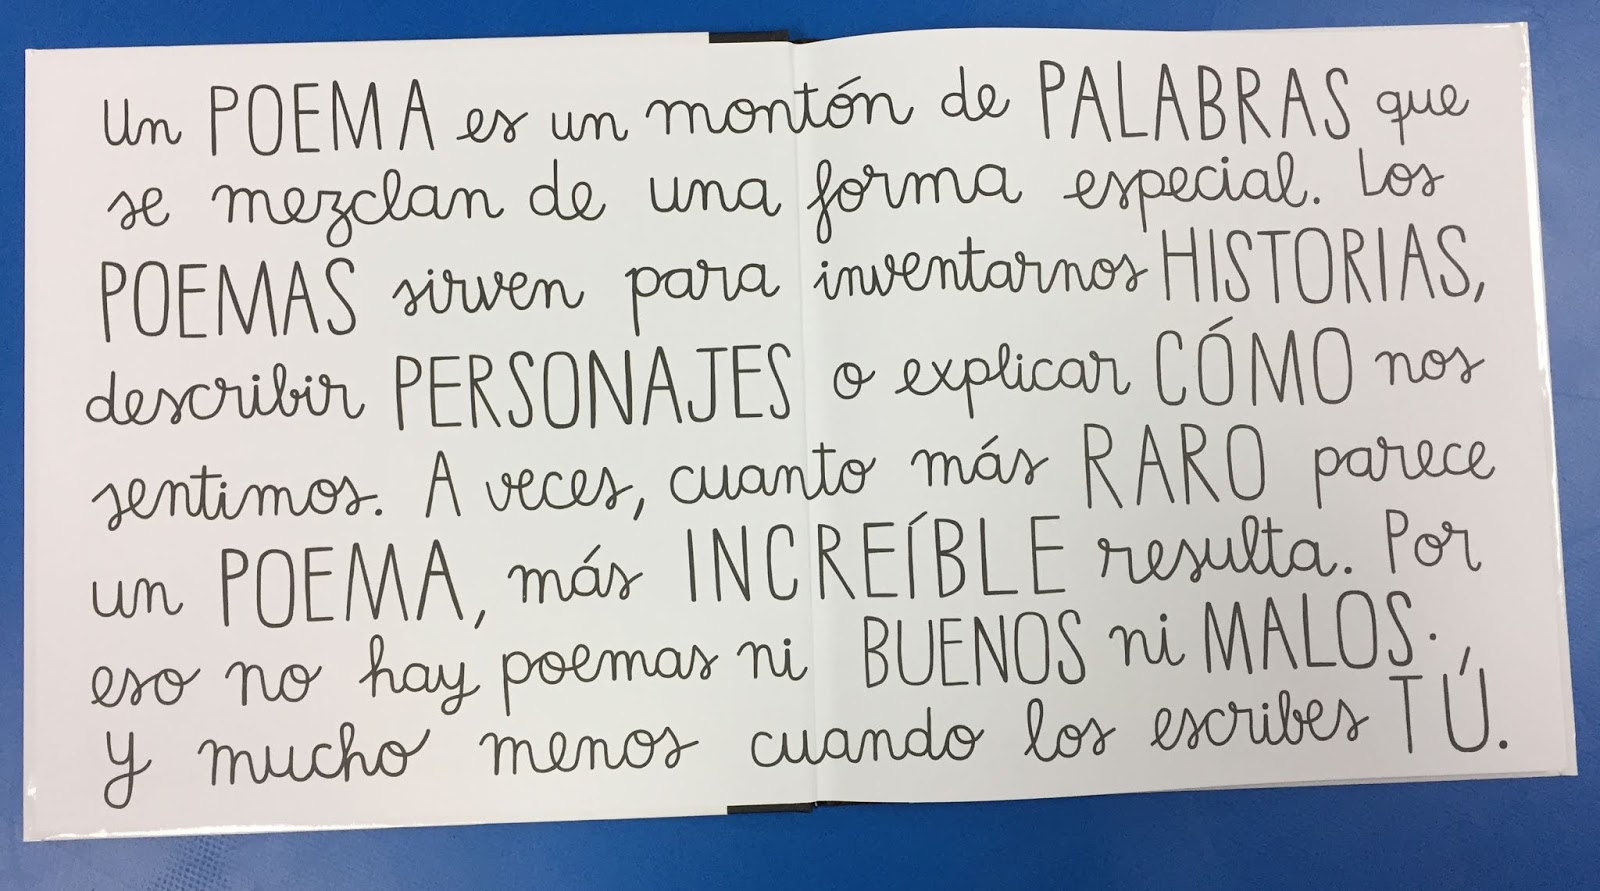 Un POEMA es un montón de PALABRAS que
se mezclan de una forma especial. Los
POEMAS sirven para inventarnos HISTORIAS,
describir PERSONAJES o explicar CÓMO nos
sentimos. A veces, cuanto más RARO parece
un POEMA, más INCREÍBLE resulta. Por
eso no hay poemas ni BUENOS ni MALOS.
Y mucho menos cuando los escribes TÚ.